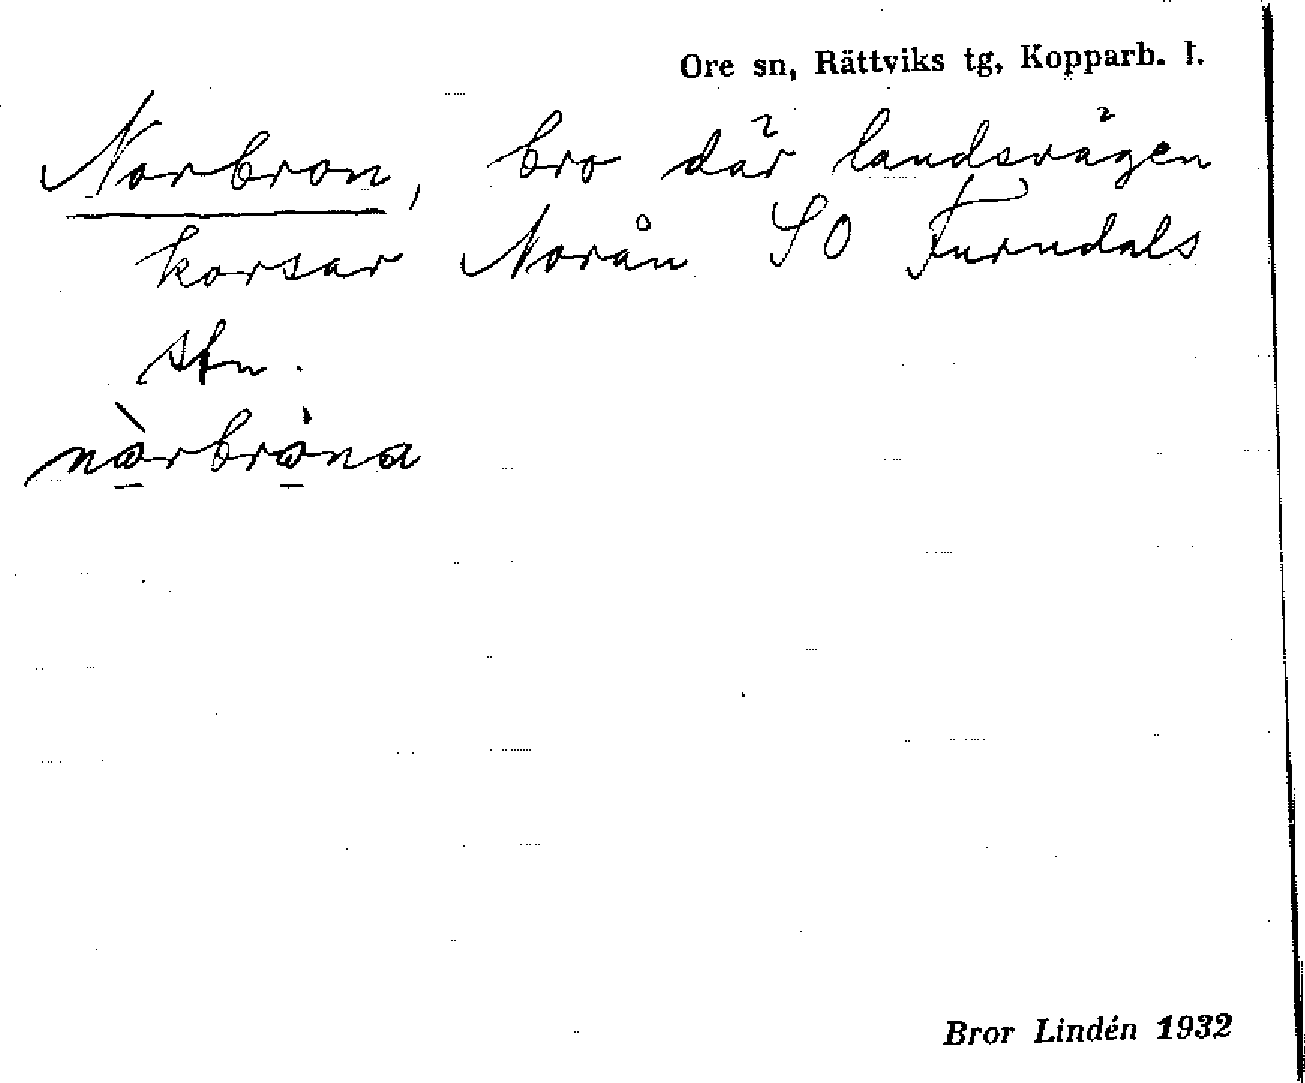 Ore sn, Rättviks tg, Kopparb. l.
Norbron, bro där landsvägen
korsar Norån SO Furudals
stn.
nòrbròna
Bror Lindén 1932